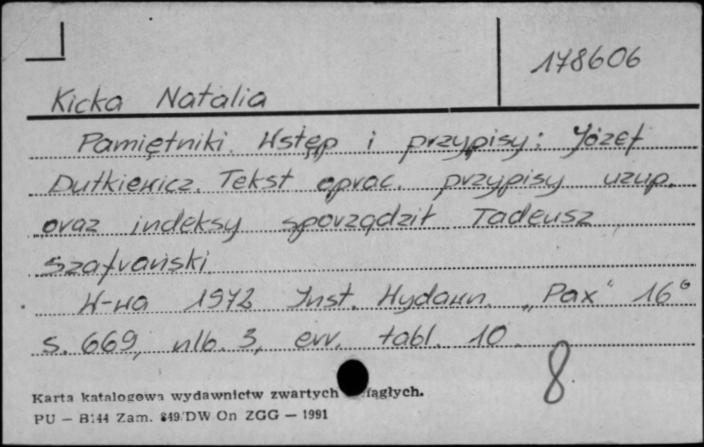 178606
Kicka Natalia
Pamiętniki. Wstęp i przypisy: Józef
Dutkiewicz. Tekst oprac. przypisy uzup.
oraz indeksy sporządził Tadeusz
Szafrański
W-wa 1972 Inst. Wydawn. „Pax" 16°
s. 669, nlb. 3, err. tabl. 10.
8
Karta katalogowa wydawnictw zwartych ciągłych.
PU — B144 Zam. 849/DW On ZGG — 1991